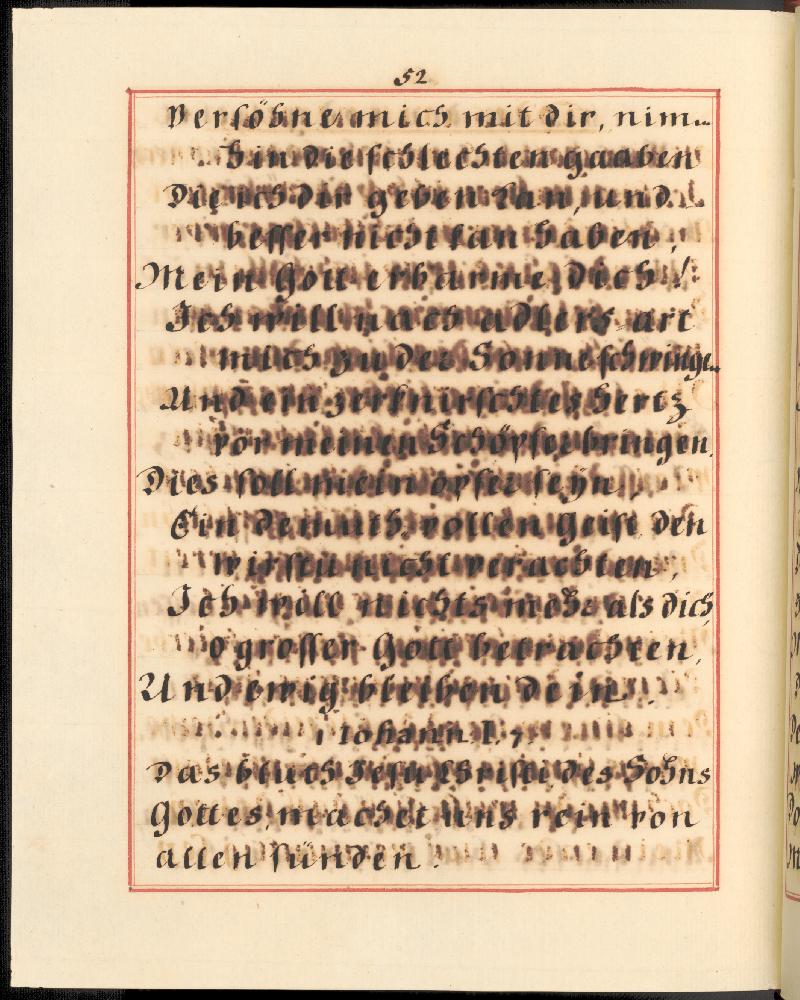 52
Versöhne mich mit dir, nim̅
hin die schlechten gaaben
Die ich dir geben kan, und
besser nicht kan haben,
Mein Gott erbarme dich!
Ich will nach adlers art
mich zu der Sonne schwinge̅
Und ein zerknirschtes hertz
vor meinen Schöpfer bringen,
Dies soll mein opfer seyn,
Ein demuth vollen Geist den
wirstu nicht verachten,
Ich will nichts mehr als dich,
o grosser Gott betrachten,
Und ewig bleiben dein.
1 Iohann I. 7
Das bluth Jesu Christi des Sohns
Gottes, machet uns rein von
allen sünden.